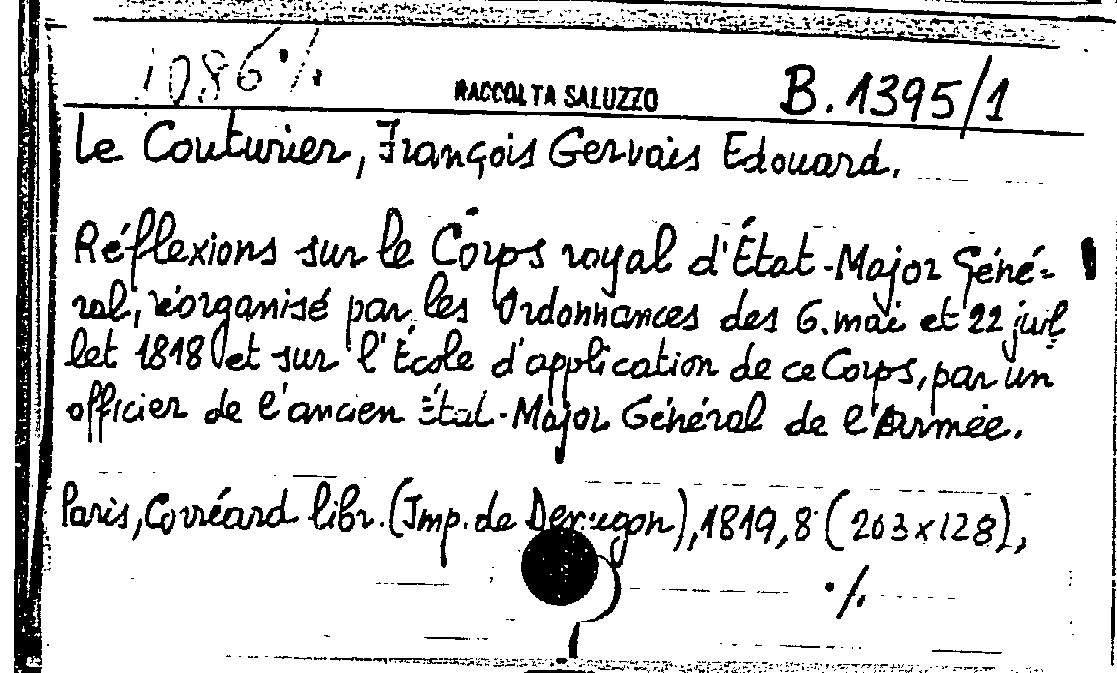 1086 ./.
RACCOLTA SALUZZO
B. 1395/1
Le Couturier, François Gervais Edouard.
Réflexions sur le Corps royal d'État-Major Géné-
ral, réorganisé par les Ordonnances des 6. mai et 22 juil
let 1818 et sur l'École d'application de ce Corps, par un
officier de l'ancien État-Major Général de l'Armée.
Paris, Corréard libr. (Imp. de), 1819, 8° (203x128),
./.